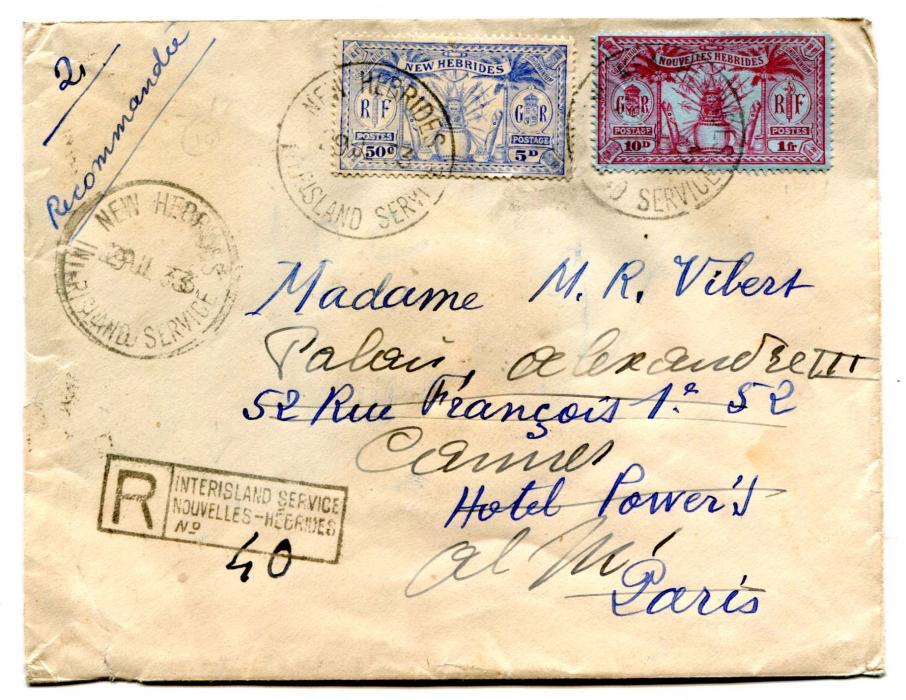 2.
Recommandée
NEW HEBRIDES
RF GR
POSTES POSTAGE
50c 5D
NOUVELLES HEBRIDES
GR RF
POSTAGE POSTES
10D 1fr
NEW HEBRIDES
INTERISLAND SERVICE
NEW HEBRIDES
29 JUL 33
INTERISLAND SERVICE
Madame M. R. Vibert
Palais Alexandre III
52 Rue François 1er 52
Cannes
Hotel Power's
al. M.
Paris
R
INTERISLAND SERVICE
NOUVELLES-HÉBRIDES
No
40